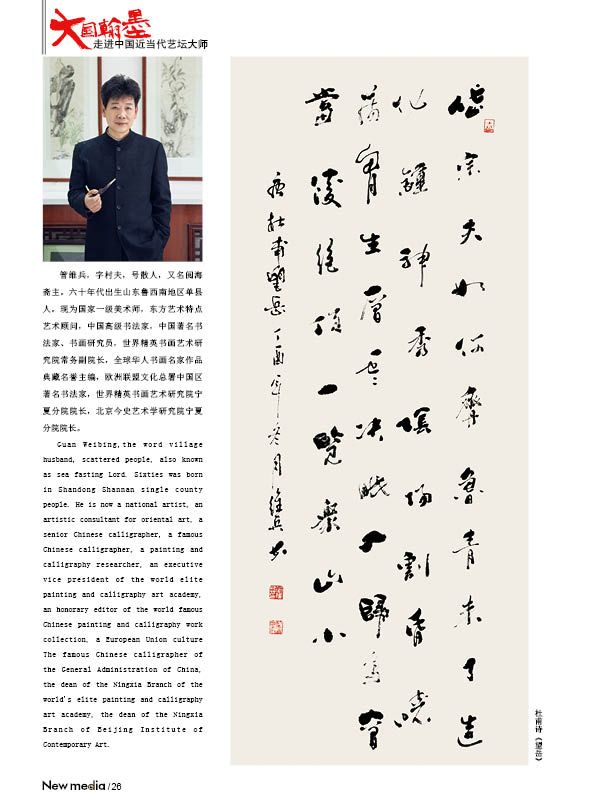 大国翰墨
走进中国近当代艺坛大师
管维兵，字村夫，号散人，又名阅海
斋主。六十年代出生山东鲁西南地区单县
人。现为国家一级美术师，东方艺术特点
艺术顾问，中国高级书法家，中国著名书
法家、书画研究员，世界精英书画艺术研
究院常务副院长，全球华人书画名家作品
典藏名誉主编，欧洲联盟文化总署中国区
著名书法家，世界精英书画艺术研究院宁
夏分院院长，北京今史艺术学研究院宁夏
分院院长。
Guan Weibing,the word village
husband, scattered people, also known
as sea fasting Lord. Sixties was born
in Shandong Shannan single county
people. He is now a national artist, an
artistic consultant for oriental art, a
senior Chinese calligrapher, a famous
Chinese calligrapher, a painting and
calligraphy researcher, an executive
vice president of the world elite
painting and calligraphy art academy,
an honorary editor of the world famous
Chinese painting and calligraphy work
collection, a European Union culture
The famous Chinese calligrapher of
the General Administration of China,
the dean of the Ningxia Branch of the
world's elite painting and calligraphy
art academy, the dean of the Ningxia
Branch of Beijing Institute of
Contemporary Art.
岱宗夫如何齊魯青未了造
化鍾神秀陰陽割昏曉
蕩胸生層雲决眦入歸鳥會
當凌绝頂一覽衆山小
唐杜甫望岳丁酉年冬月維兵书
杜甫诗《望岳》
New media / 26